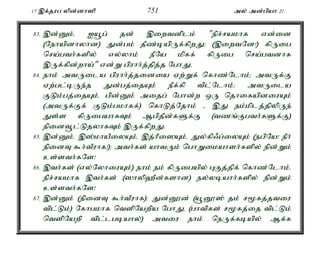 17 இக்தரப லின்னாஸி 751 அல் அன்பியா 21
83. இன்னும், ஐயூப் தன் இறைவனிடம் "நிச்சயமாக என்னை
(நோயினாலான) துன்பம் தீண்டியிருக்கிறது; (இறைவனே!) கிருபை
செய்பவர்களில் எல்லாம் நீயே மிகக் கிருபை செய்பவனாக
இருக்கின்றாய்" என்று பிரார்த்தித்த போது.
84. நாம் அவருடைய பிரார்த்தனையை ஏற்றுக் கொண்டோம்; அவருக்கு
ஏற்பட்டிருந்த துன்பத்தையும் நீக்கி விட்டோம்; அவருடைய
குடும்பத்தையும், பின்னும் அதைப் போன்ற ஒரு தொகையினரையும்
(அவருக்குக் குடும்பமாகக்) கொடுத்தோம் - இது நம்மிடத்திலிருந்
துள்ள கிருபையாகவும் ஆபிதீன்களுக்கு (வணங்குபவர்களுக்கு)
நினைவூட்டுதலாகவும் இருக்கிறது.
85. இன்னும், இஸ்மாயீலையும், இத்ரீஸையும், துல்கிஃப்லையும் (நபியே! நீர்
நினைவு கூர்வீராக); அவர்கள் யாவரும் பொறுமையாளர்களில் நின்றும்
உள்ளவர்களே!
86. இவர்கள் (எல்லோரையும்) நாம் நம் கிருபையில் புகுத்திக் கொண்டோம்,
நிச்சயமாக இவர்கள் (ஸாலிஹீன்களான) நல்லடியார்களில் நின்றும்
உள்ளவர்களே!
87. இன்னும் (நினைவு கூர்வீராக): துன்னூன் (யூனுஸ் தம் சமூகத்தவரை
விட்டும்) கோபமாக வெளியேறிய போது, (பாவிகள் சமூகத்தை விட்டும்
வெளியேறி விட்டபடியால்) அவரை நாம் நெருக்கடியில் ஆக்க